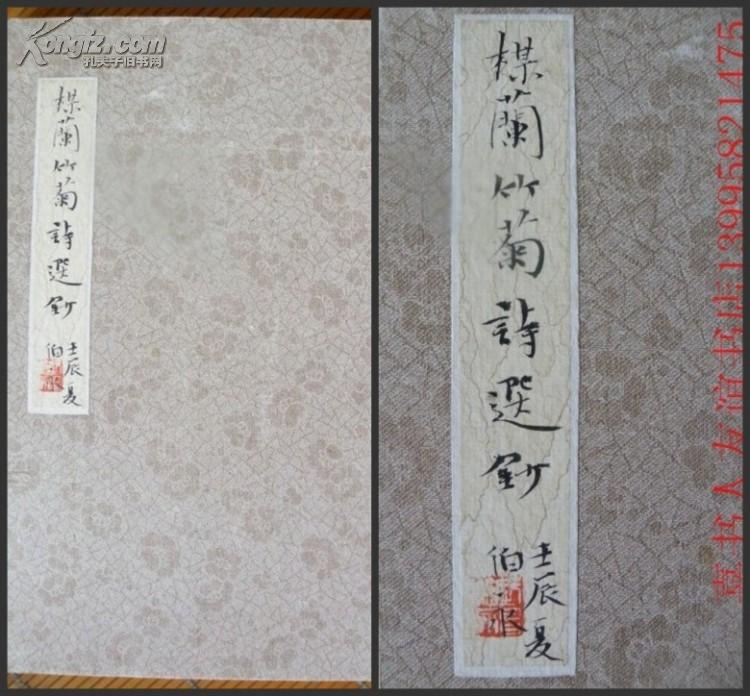 Kongfz.com
孔夫子旧书网
楳蘭竹菊詩選鈔
壬辰夏
伯
楳蘭竹菊詩選鈔
壬辰夏
伯
书人 友谊书店13995821475